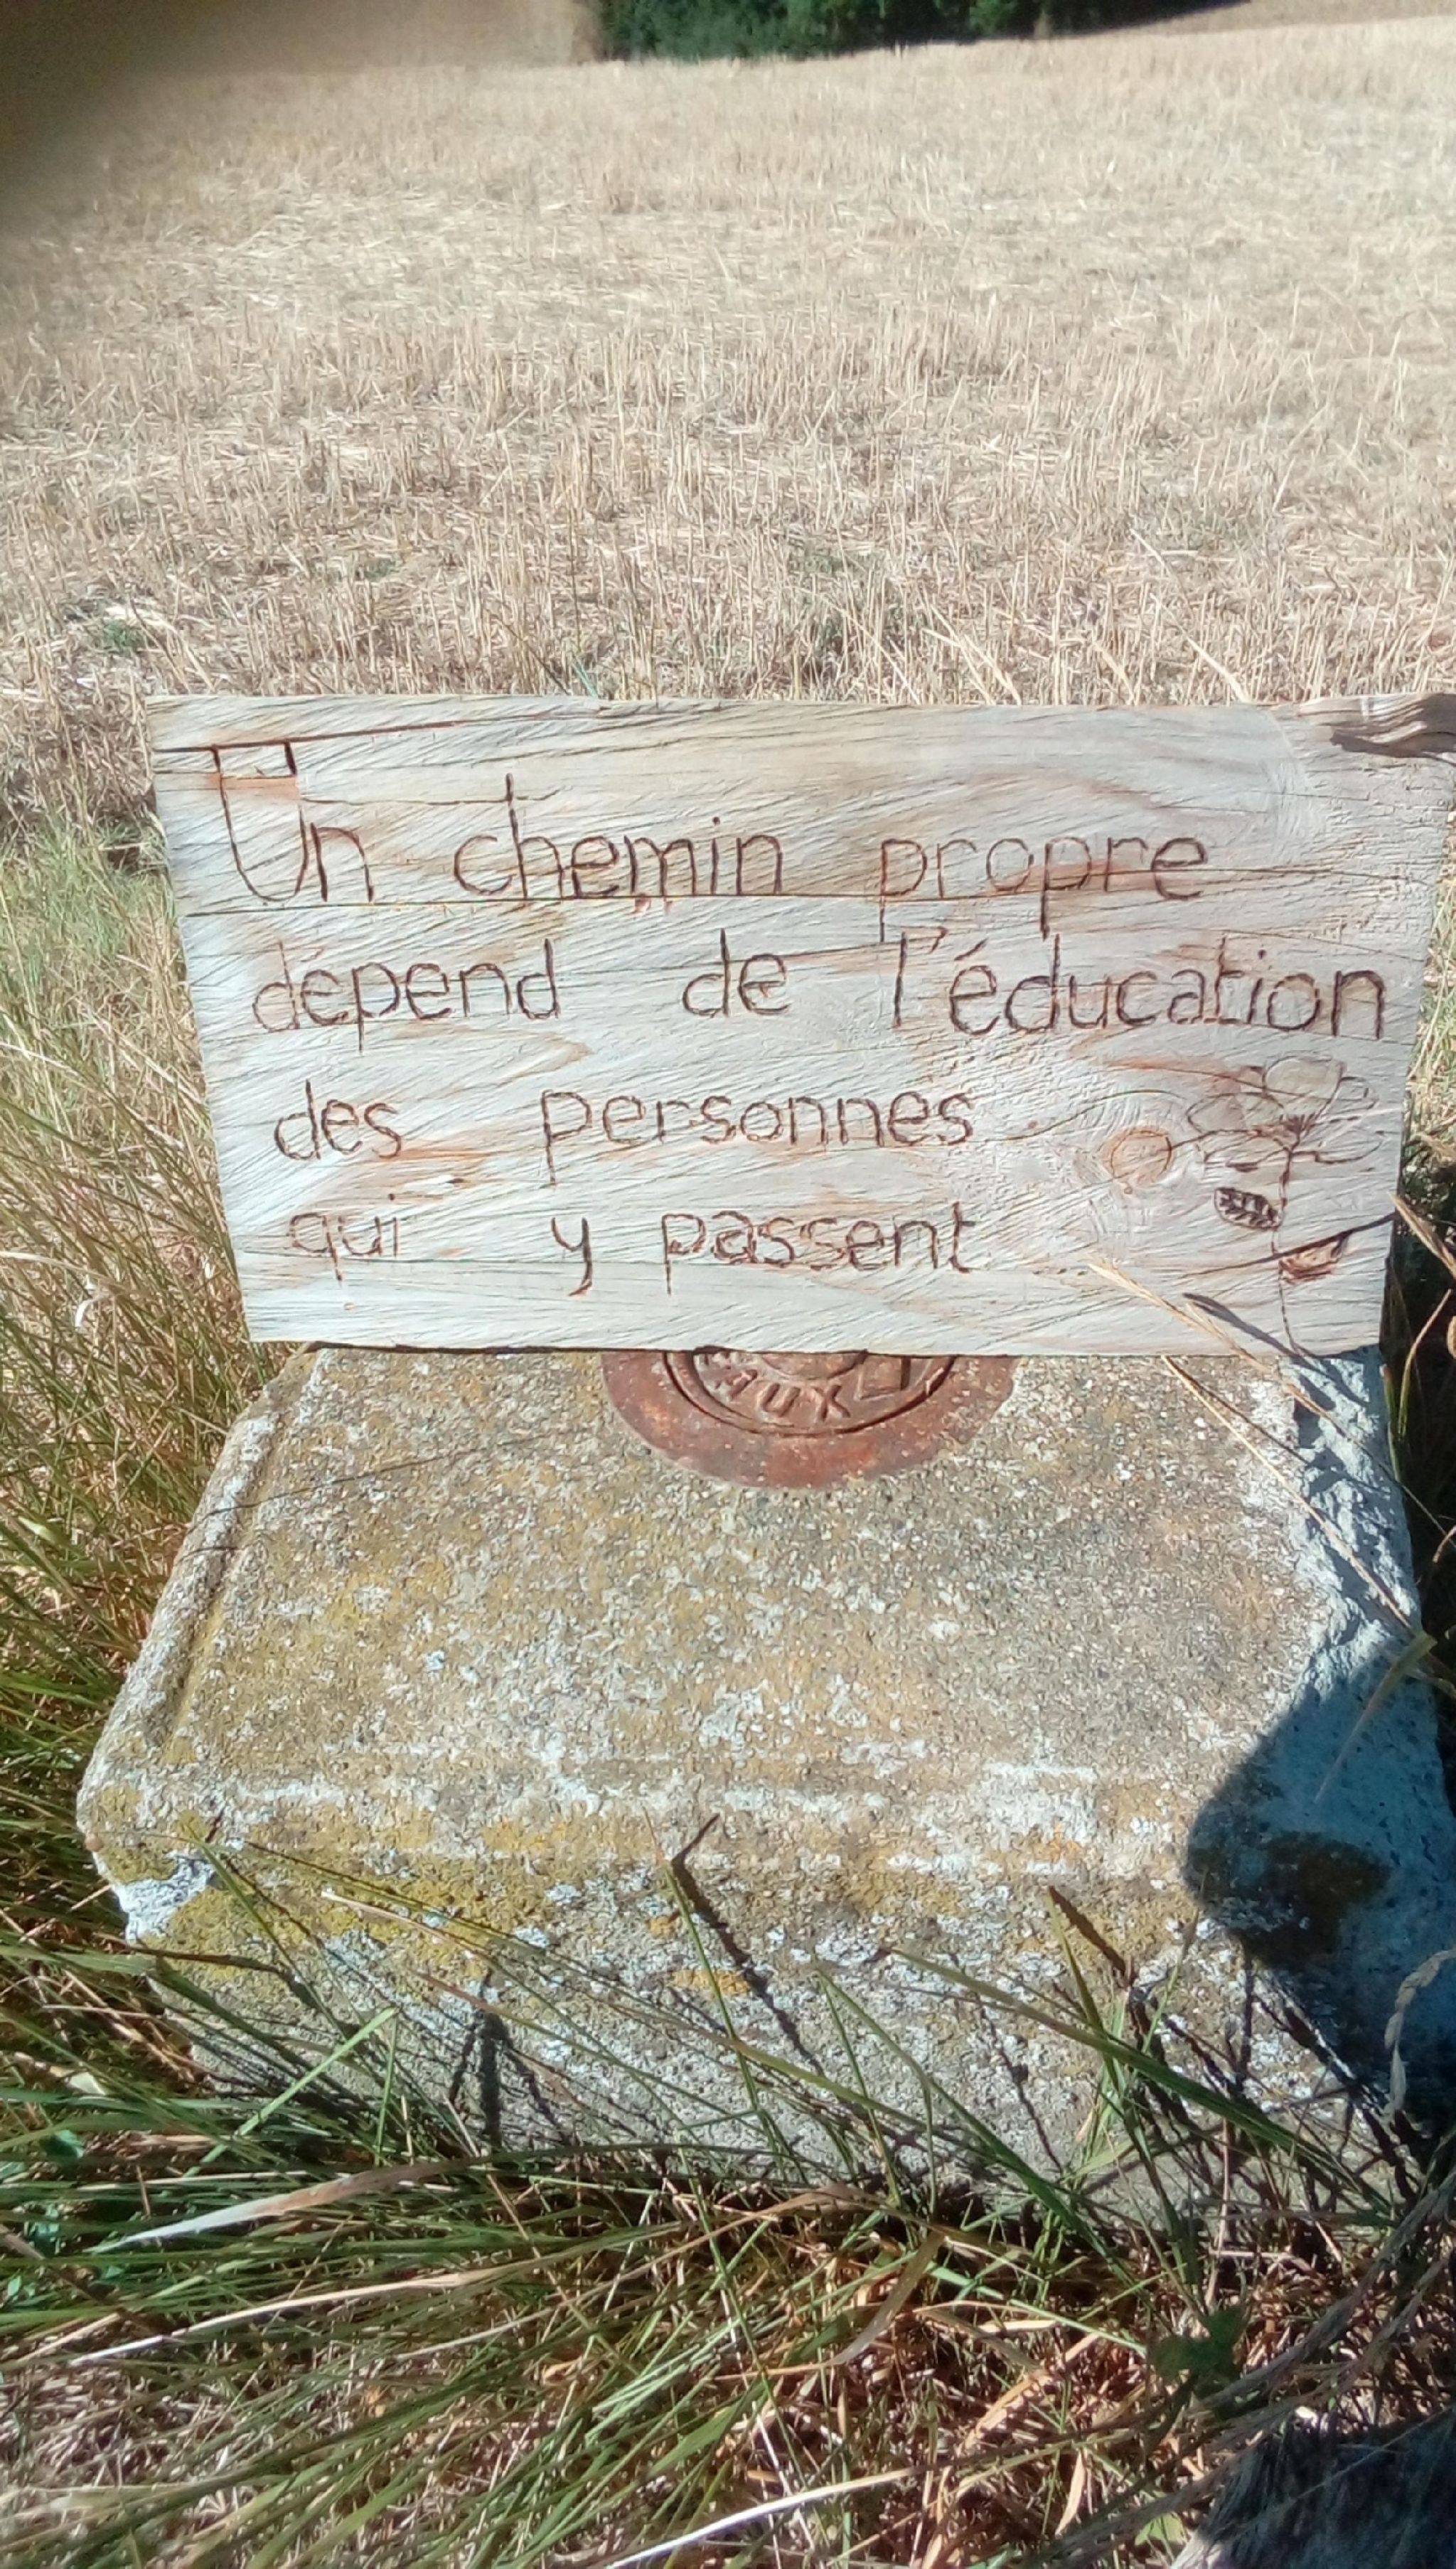 Un chemin propre
dépend de l'éducation
des personnes
qui y passent